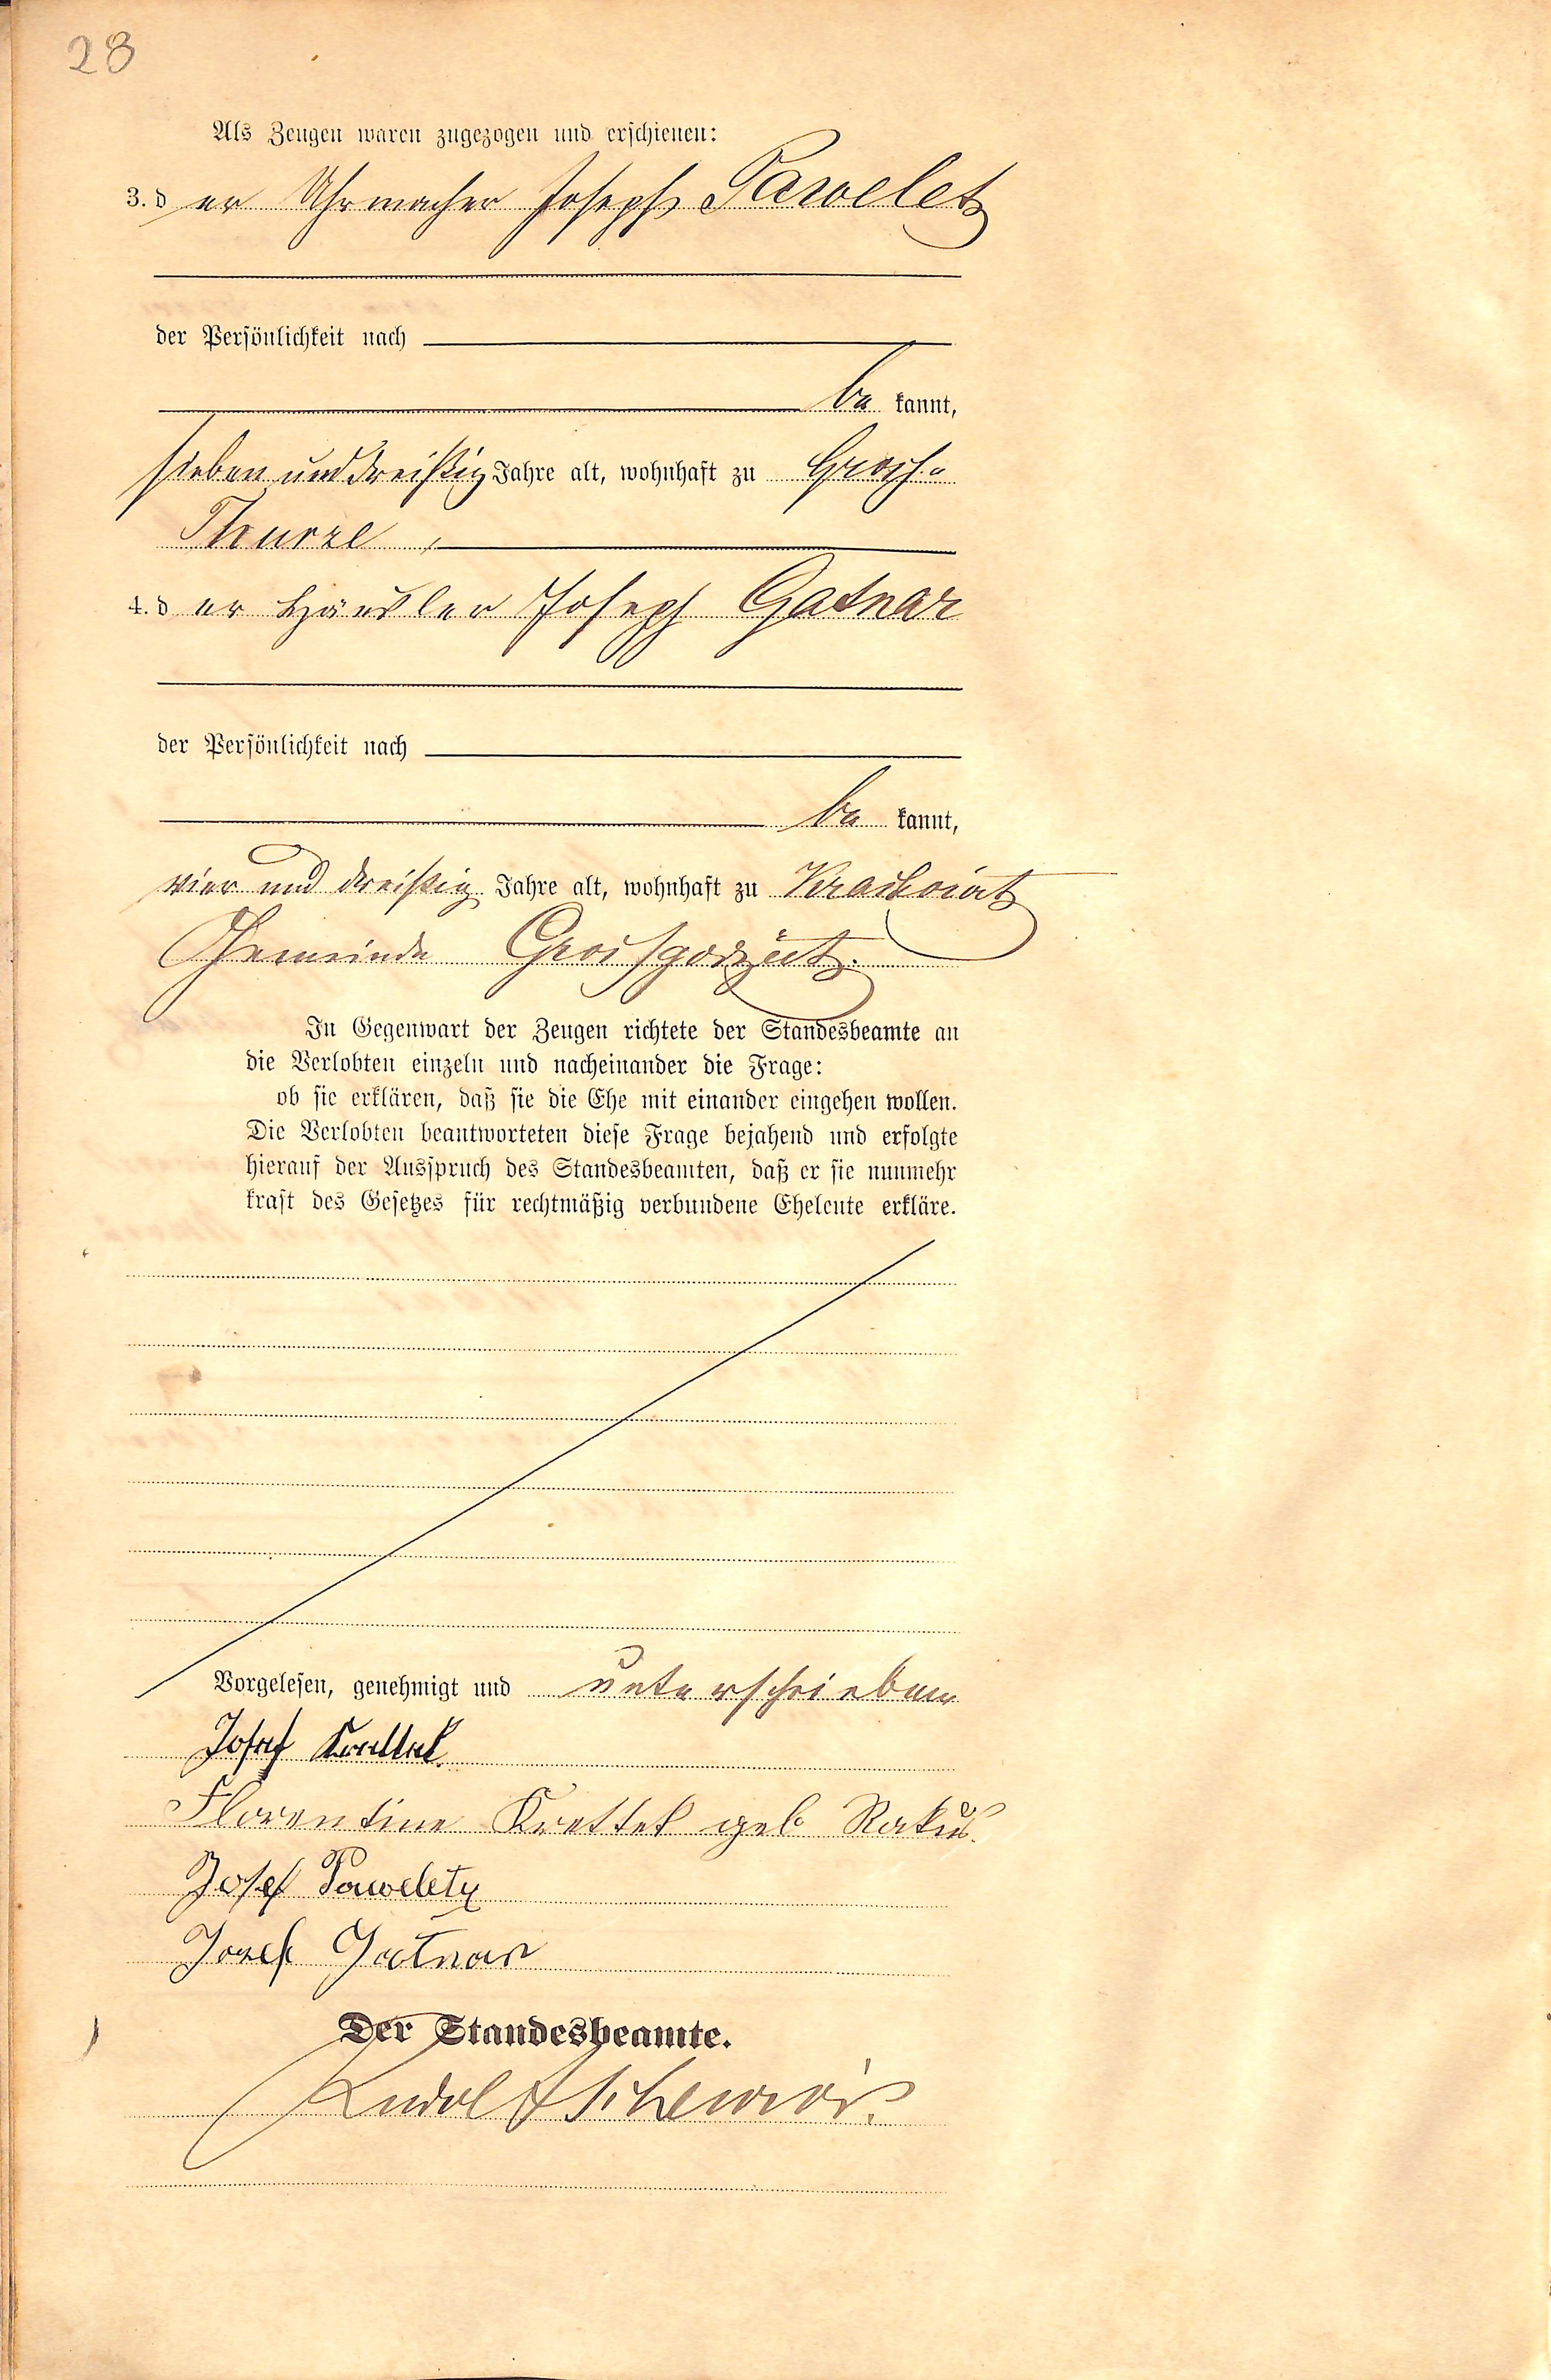 28
Als Zeugen waren zugezogen und erschienen:
3. d er Uhrmacher Joseph Paweletz
der Persönlichkeit nach
be kannt,
sieben und dreißig Jahre alt, wohnhaft zu Gross-
Thurze,
4. d er Häusler Joseph Gatnar
der Persönlichkeit nach
be kannt,
vier und dreißig Jahre alt, wohnhaft zu
Gemeinde Grossgorzütz.
In Gegenwart der Zeugen richtete der Standesbeamte an
die Verlobten einzeln und nacheinander die Frage:
ob sie erklären, daß sie die Ehe mit einander eingehen wollen.
Die Verlobten beantworteten diese Frage bejahend und erfolgte
hierauf der Ausspruch des Standesbeamten, daß er sie nunmehr
kraft des Gesetzes für rechtmäßig verbundene Eheleute erkläre.
Vorgelesen, genehmigt und unterschrieben
Josef Krettek.
Florentine Krettek geb Rakus.
Josef Paweletz
Josef Gatnar
Der Standesbeamte.
Rudolf